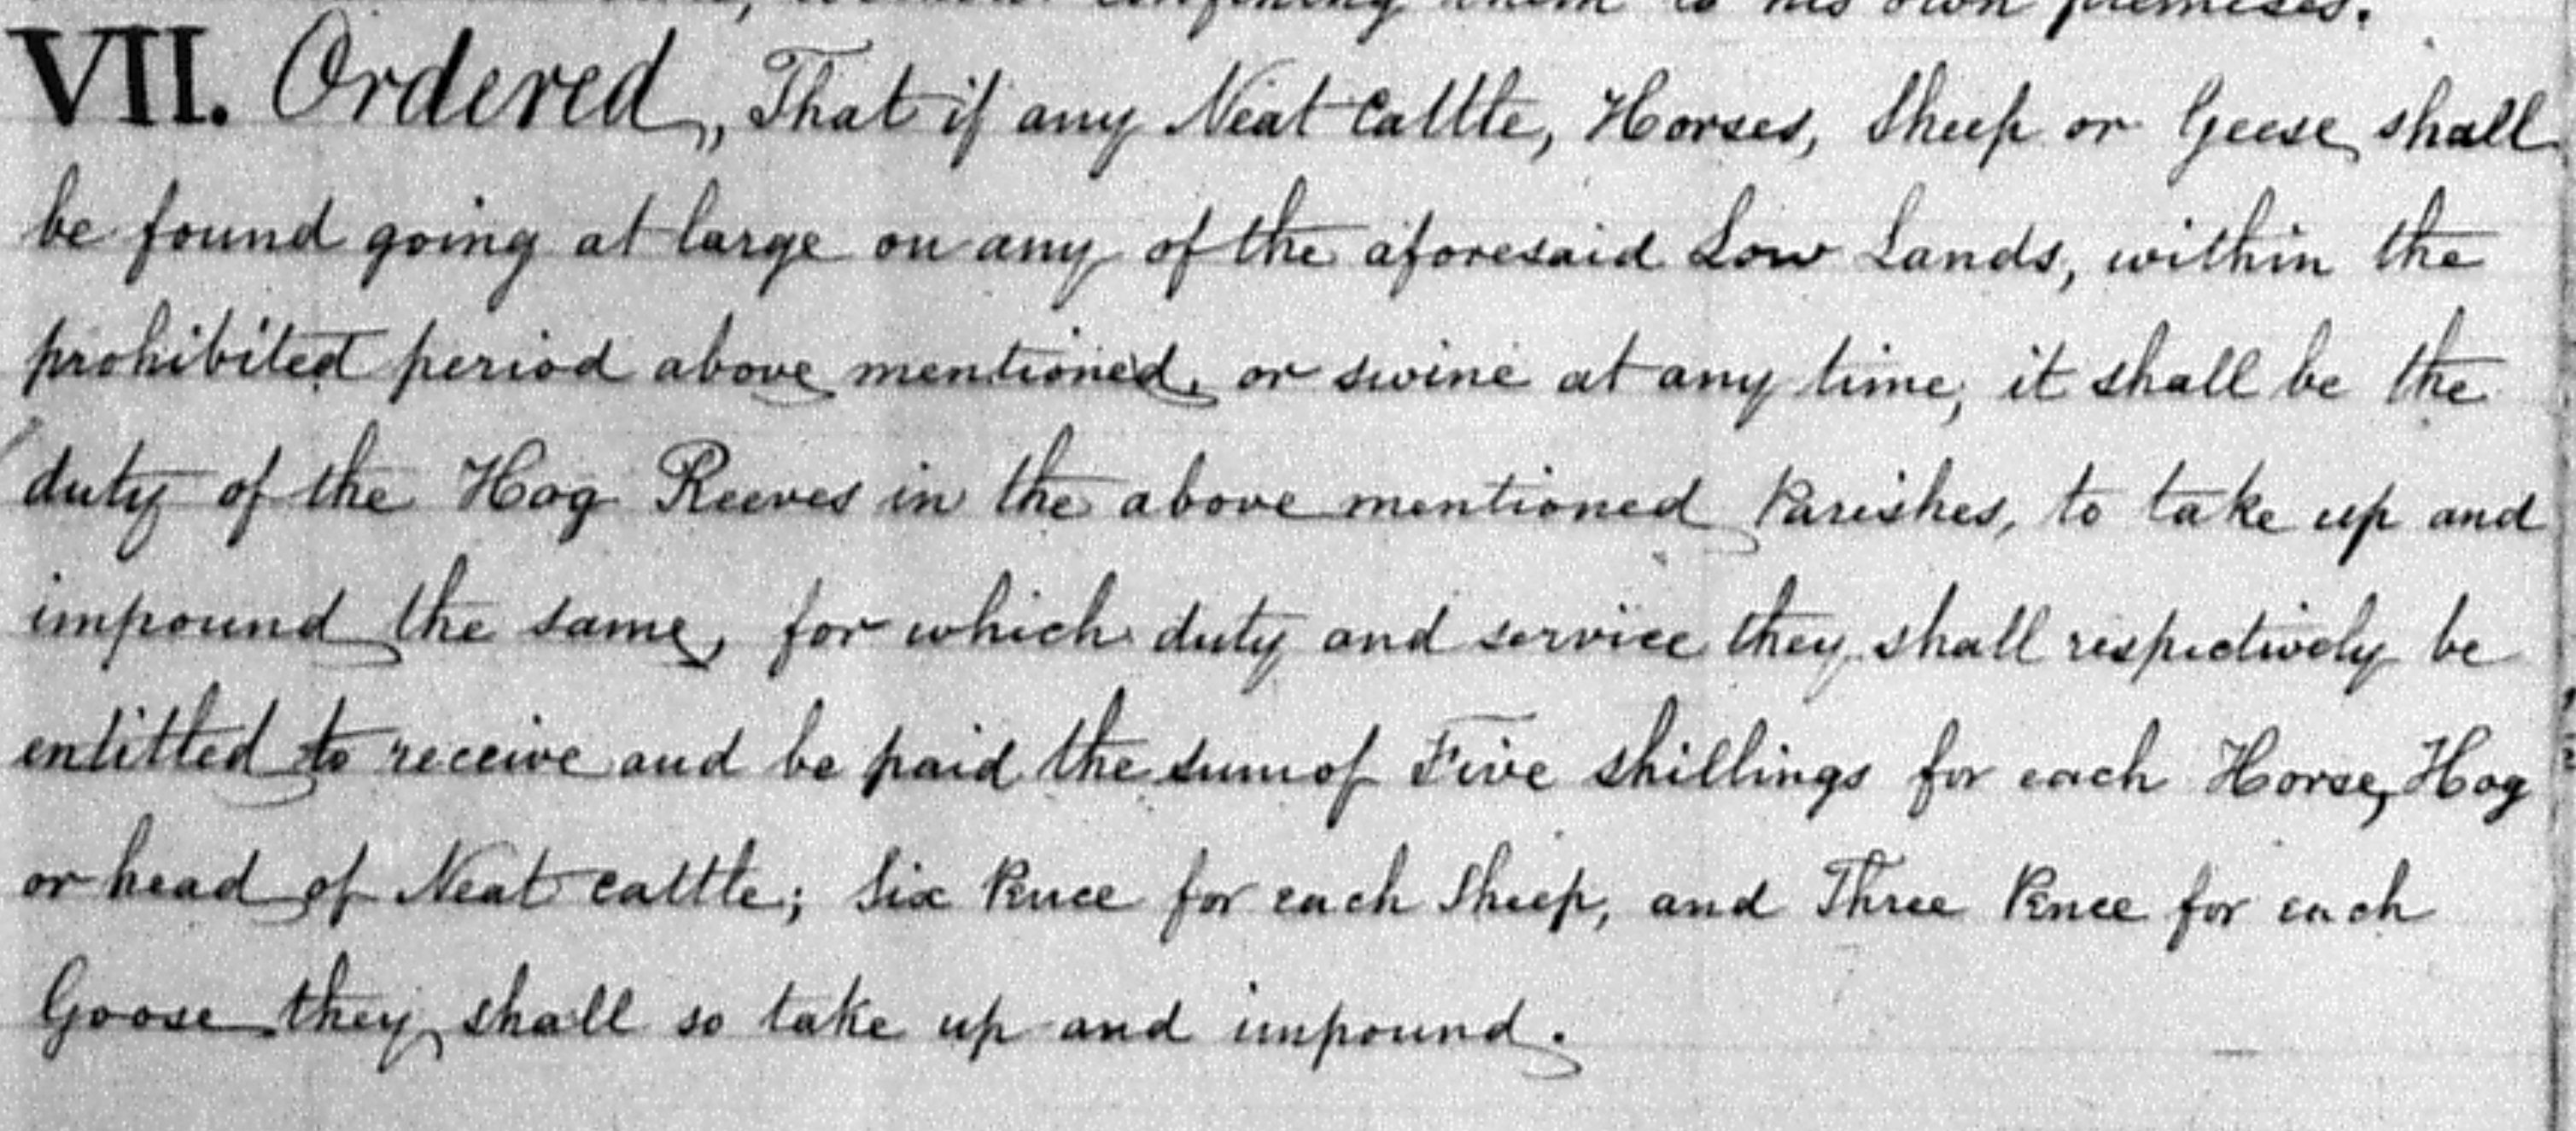 confining them to his own premises.
VII. Ordered, That if any Neat Cattle, Horses, Sheep or Geese shall
be found going at large on any of the aforesaid Low Lands, within the
prohibited period above mentioned, or swine at any time, it shall be the
duty of the Hog Reeves in the above mentioned Parishes, to take up and
impound the same, for which duty and service they shall respectively be
entitled to receive and be paid the sum of Five shillings for each Horse, Hog
or head of Neat cattle; Six Pence for each Sheep, and Three Pence for each
Goose they shall so take up and impound.